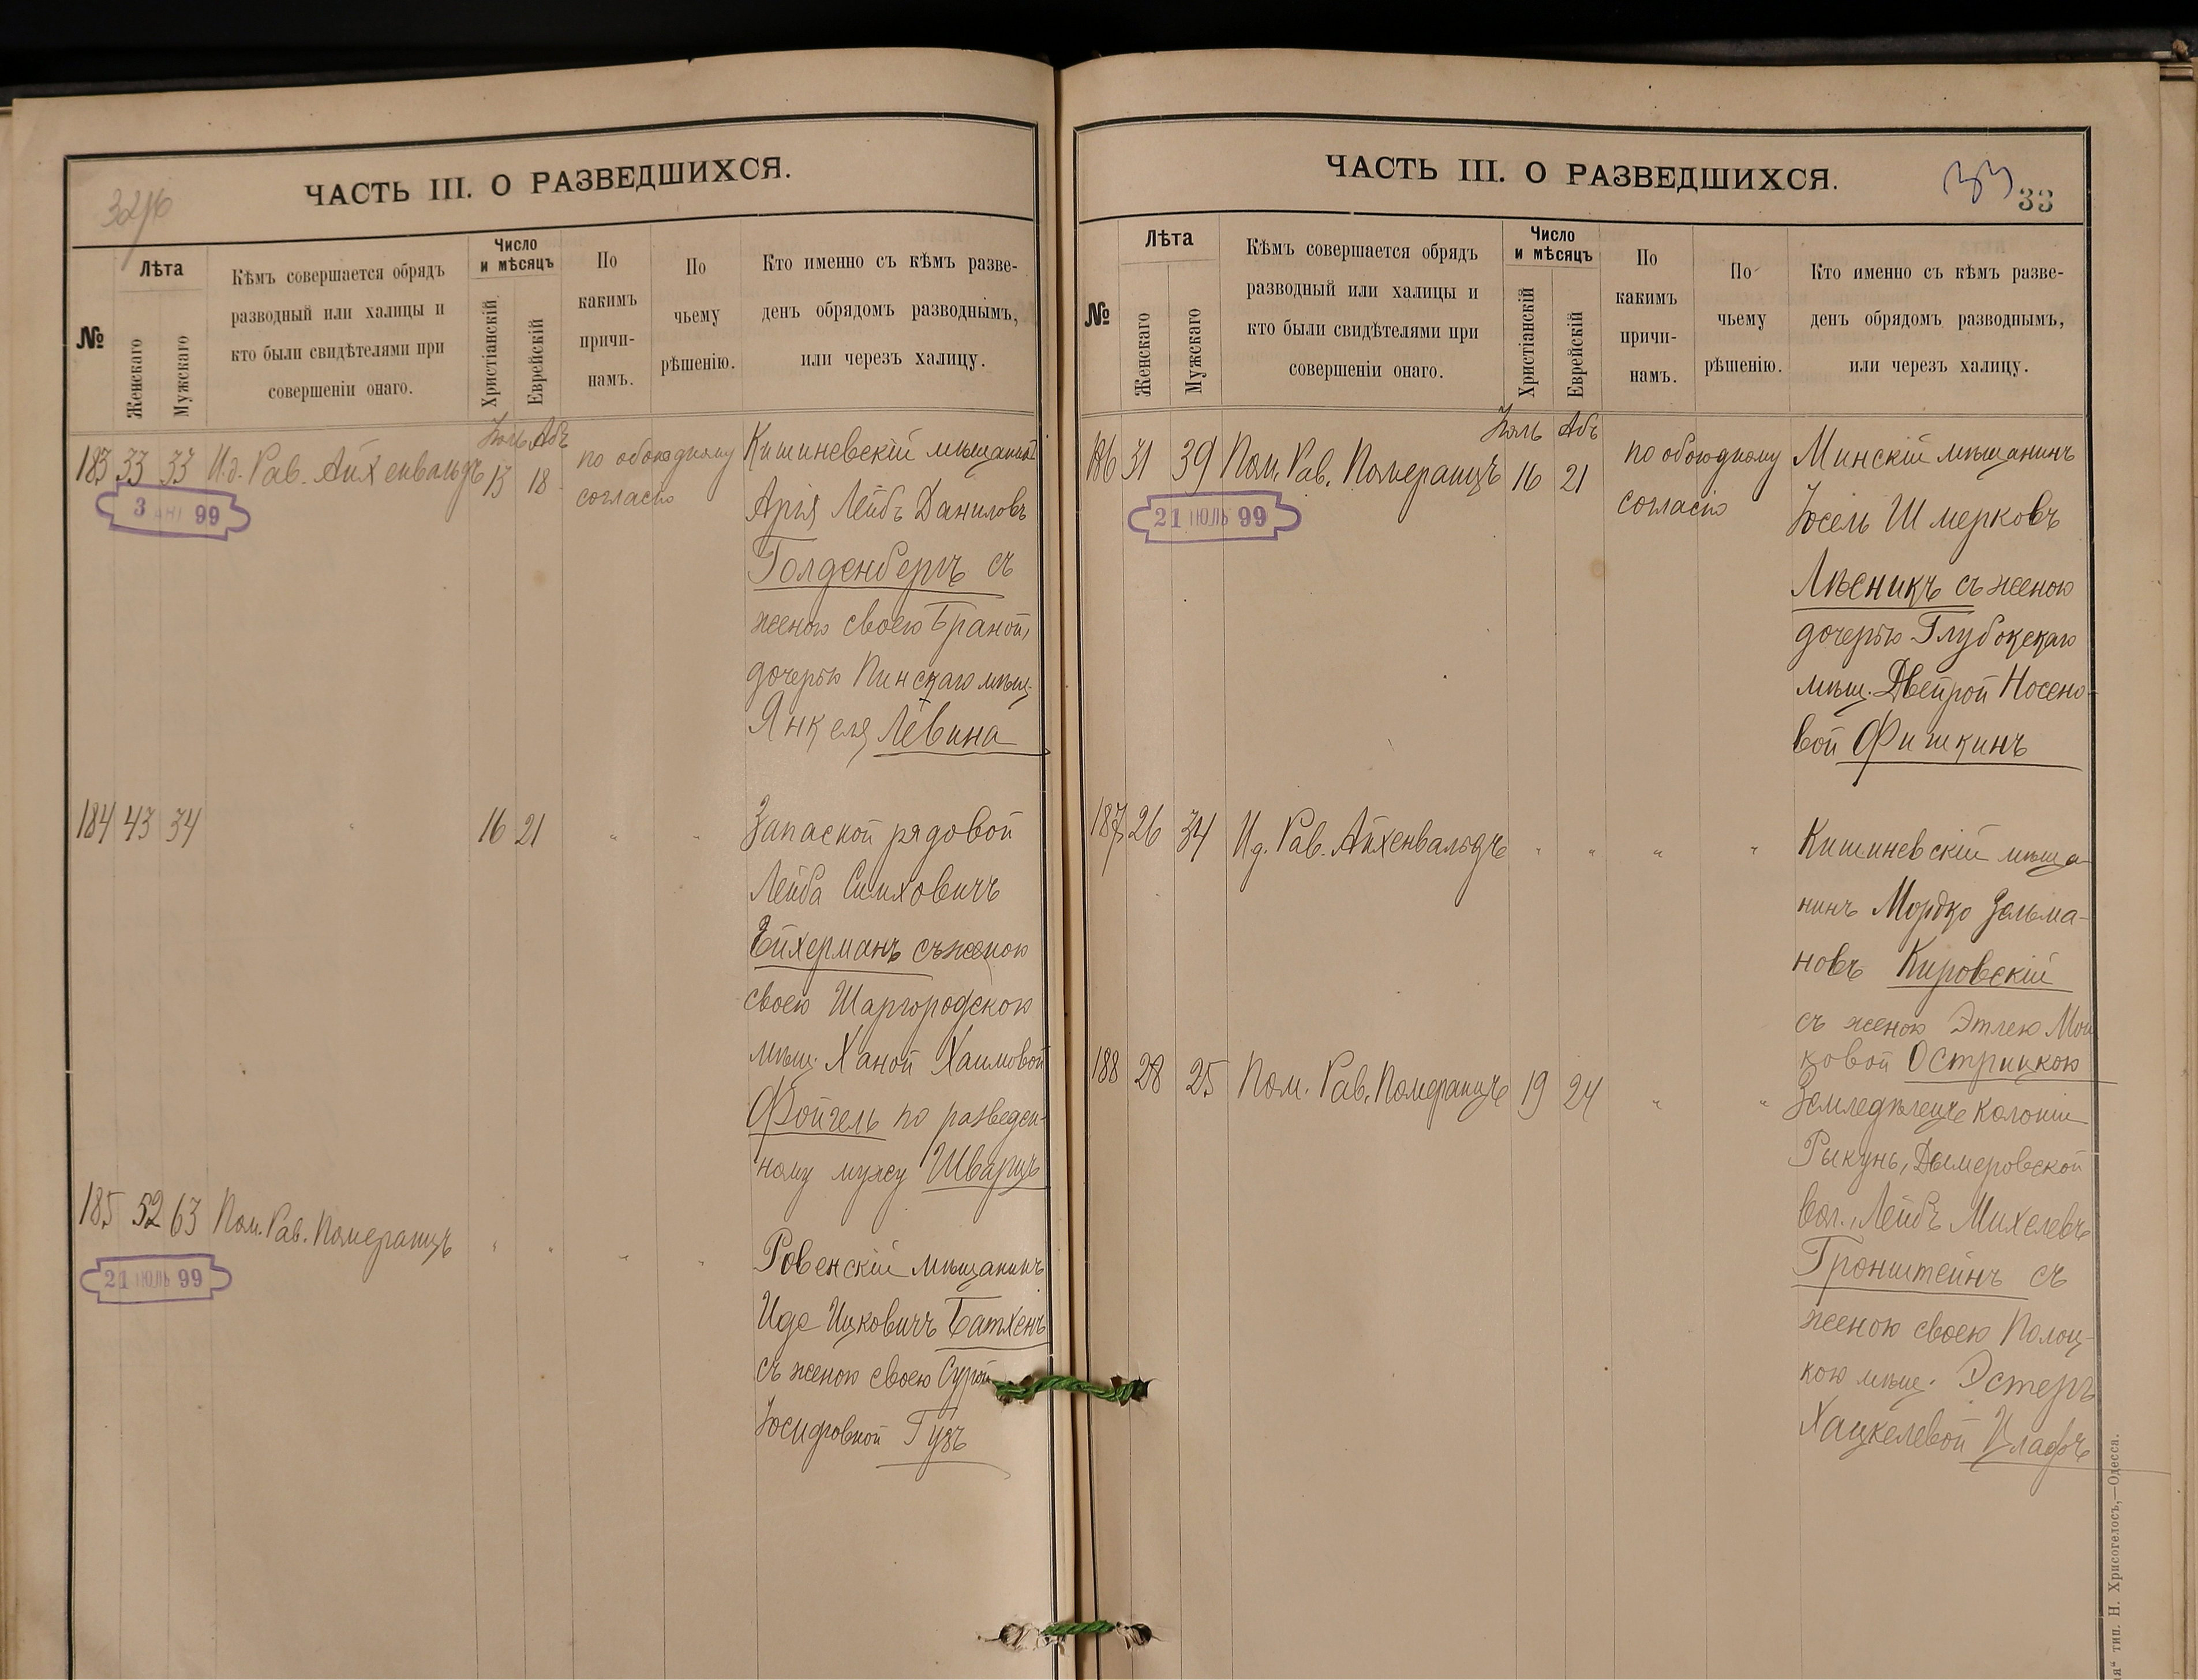 ЧАСТЬ III. О РАЗВЕДШИХСЯ.
№
Лѣта
Женскаго
Мужскаго
Кѣмъ совершается обрядъ
разводный или халицы и
кто были свидѣтелями при
совершеніи онаго.
Число
и мѣсяцъ
Христіанскій
Еврейскій
По
какимъ
причи-
намъ.
По
чьему
рѣшенію.
Кто именно съ кѣмъ разве-
денъ обрядомъ разводнымъ,
или черезъ халицу.
Іюль Абъ
183 33 33 И.д. Рав. Айхенвальдъ 13 18
по обоюдному
согласію
3 АВГ 99
Кишиневскій мѣщанинъ
Арія Лейбъ Даниловъ
Голденбергъ съ
женою своею Браной,
дочерью Пинскаго мѣщ.
Янкеля Левина
184 43 34 " 16 21 " "
Запасной рядовой
Лейба Симховичъ
Ейхерманъ съ женою
своею Шаргородскою
мѣщ. Ханой Хаимовой
Фойгель по разведен-
ному мужу Шварцъ
185 52 63 Пом. Рав. Померанцъ " " " "
21 ІЮЛЬ 99
Ровенскій мѣщанинъ
Иде Ицковичъ Батхенъ
съ женою своею Сурой
Іосифовной Гузъ
ЧАСТЬ III. О РАЗВЕДШИХСЯ.
33 33
№
Лѣта
Женскаго
Мужскаго
Кѣмъ совершается обрядъ
разводный или халицы и
кто были свидѣтелями при
совершеніи онаго.
Число
и мѣсяцъ
Христіанскій
Еврейскій
По
какимъ
причи-
намъ.
По
чьему
рѣшенію.
Кто именно съ кѣмъ разве-
денъ обрядомъ разводнымъ,
или черезъ халицу.
Іюль Абъ
186 31 39 Пом. Рав. Померанцъ 16 21
по обоюдному
согласію
21 ІЮЛЬ 99
Минскій мѣщанинъ
Іосель Шмерковъ
Лѣсникъ съ женою
дочерью Глубокскаго
мѣщ. Двейрой Носено-
вой Фишкинъ
187 26 34 И.д. Рав. Айхенвальдъ " " " "
Кишиневскій мѣща-
нинъ Мордко Зельма-
новъ Кировскій
съ женою Этлею Мош-
ковой Острицкою
188 28 25 Пом. Рав. Померанцъ 19 24 " "
Земледѣлецъ колоніи
Рыкунь, Дымеровской
вол., Лейбъ Михелевъ
Гронштейнъ съ
женою своею Полоц-
кою мѣщ. Эстеръ
Хацкелевой Цлафъ
тип. Н. Хрисогелосъ,—Одесса.